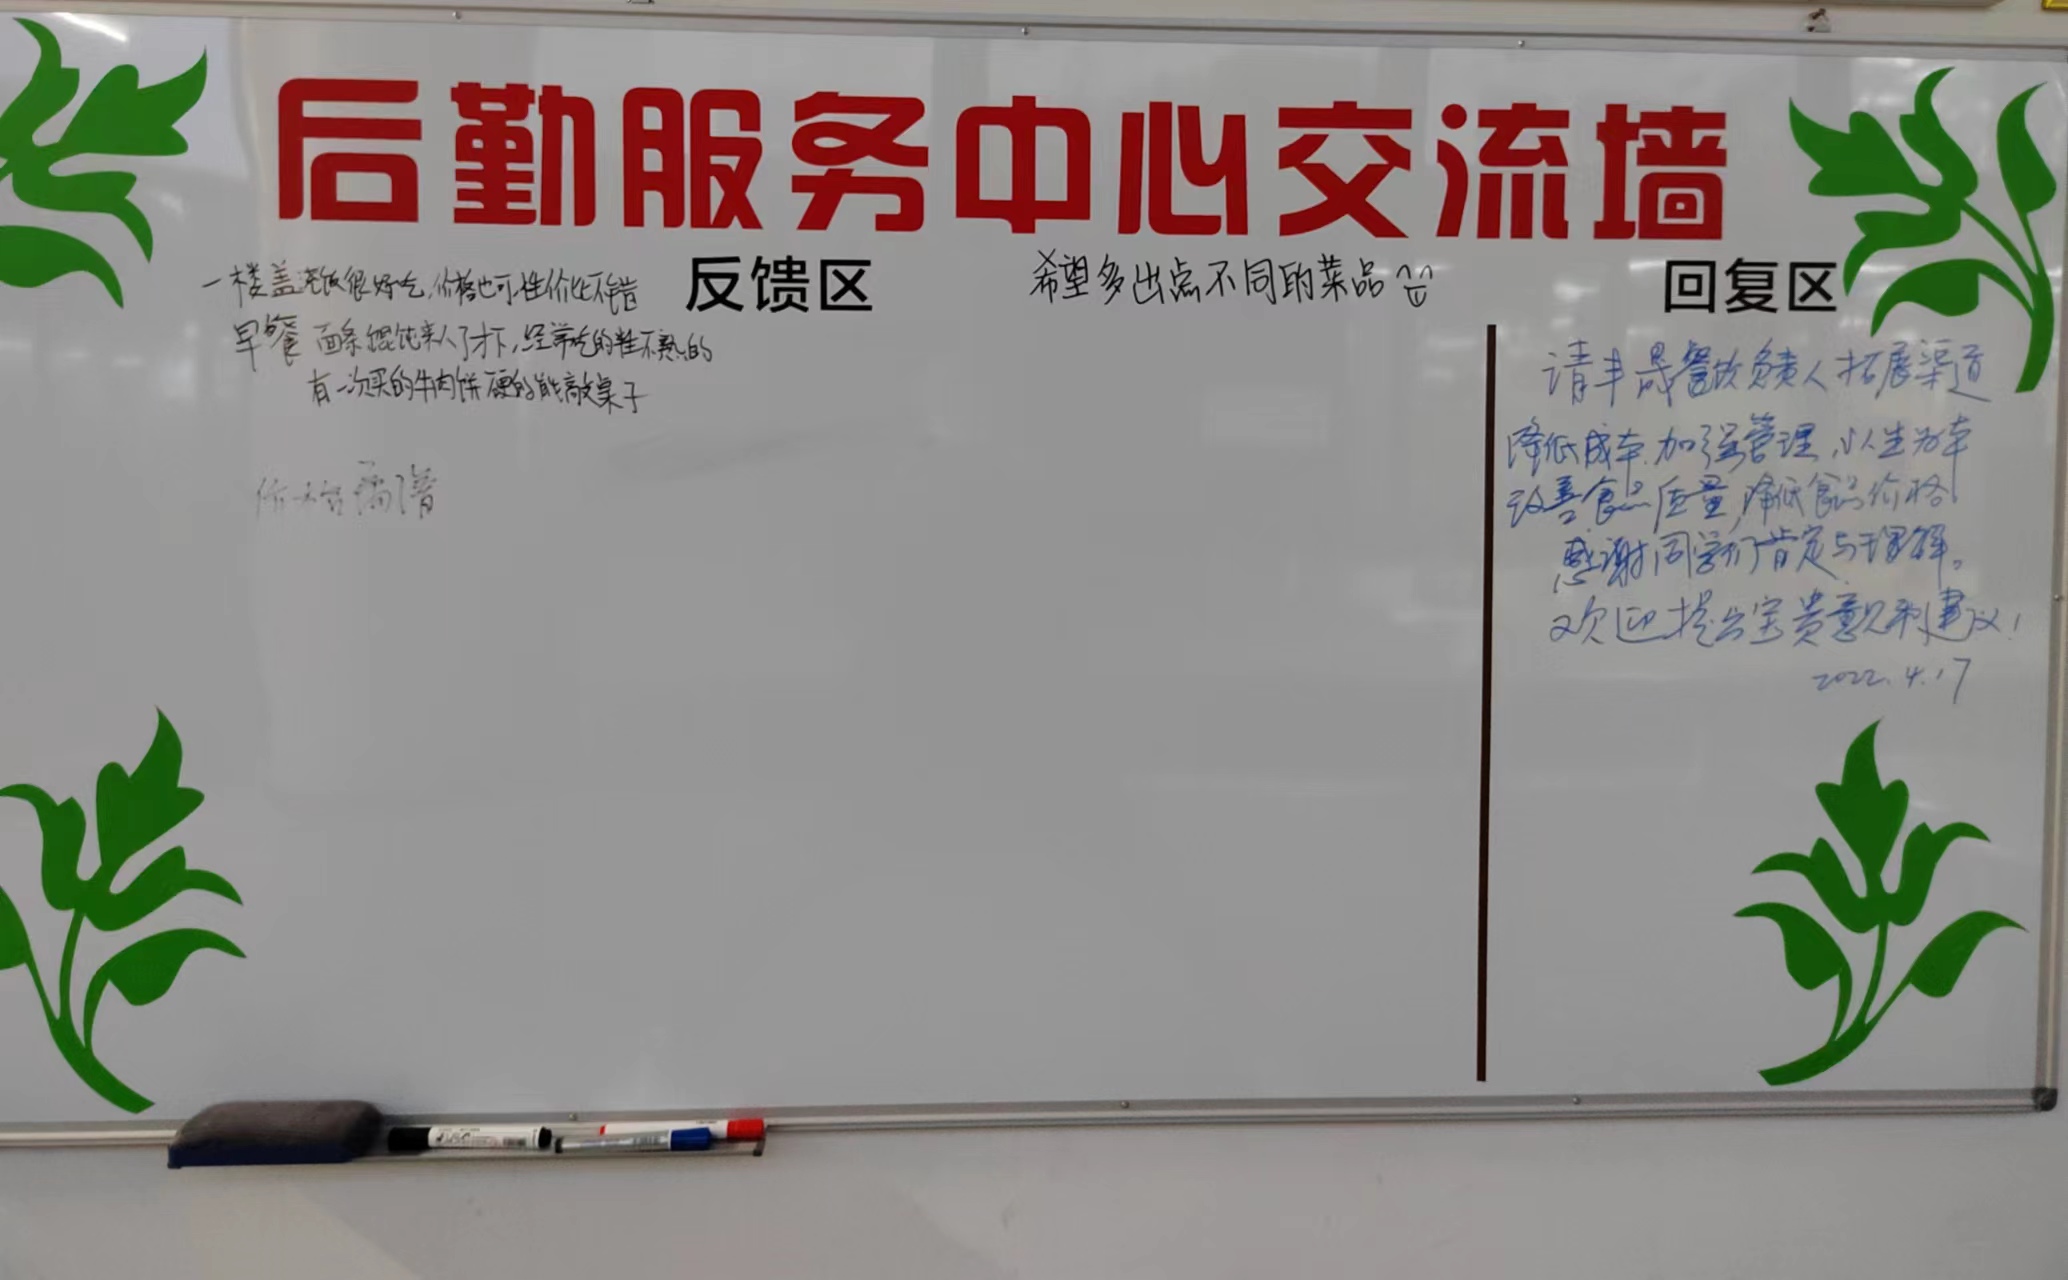 后勤服务中心交流墙
反馈区
一楼盖浇饭很好吃,价格也可,性价比不错
早餐 面条馄饨来人了才下,经常吃的半不熟的
有一次买的牛肉饼硬的能敲桌子
希望多出点不同的菜品
回复区
请丰晟餐饮负责人拓展渠道
降低成本,加强管理,以人生为本
改善食品质量,降低食品价格
感谢同学们肯定与理解。
欢迎提出宝贵意见和建议!
2022.4.17